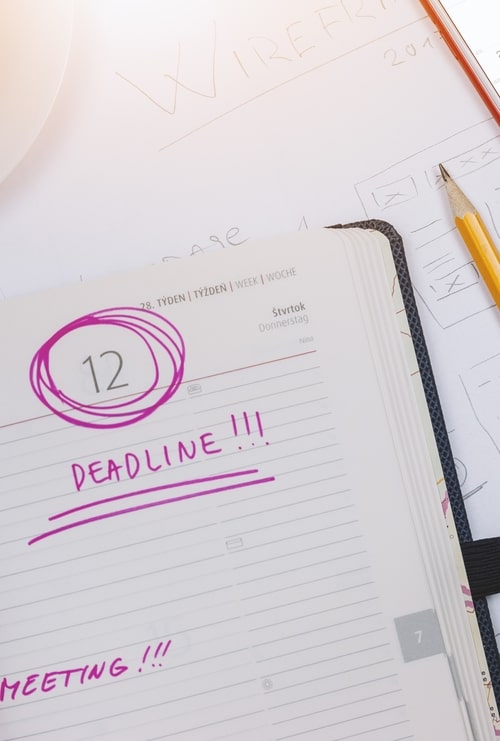 WIREFR
201
28. TÝDEN | TÝŽDEŇ | WEEK | WOCHE
Štvrtok
Donnerstag
12
DEADLINE !!!
MEETING !!!
7